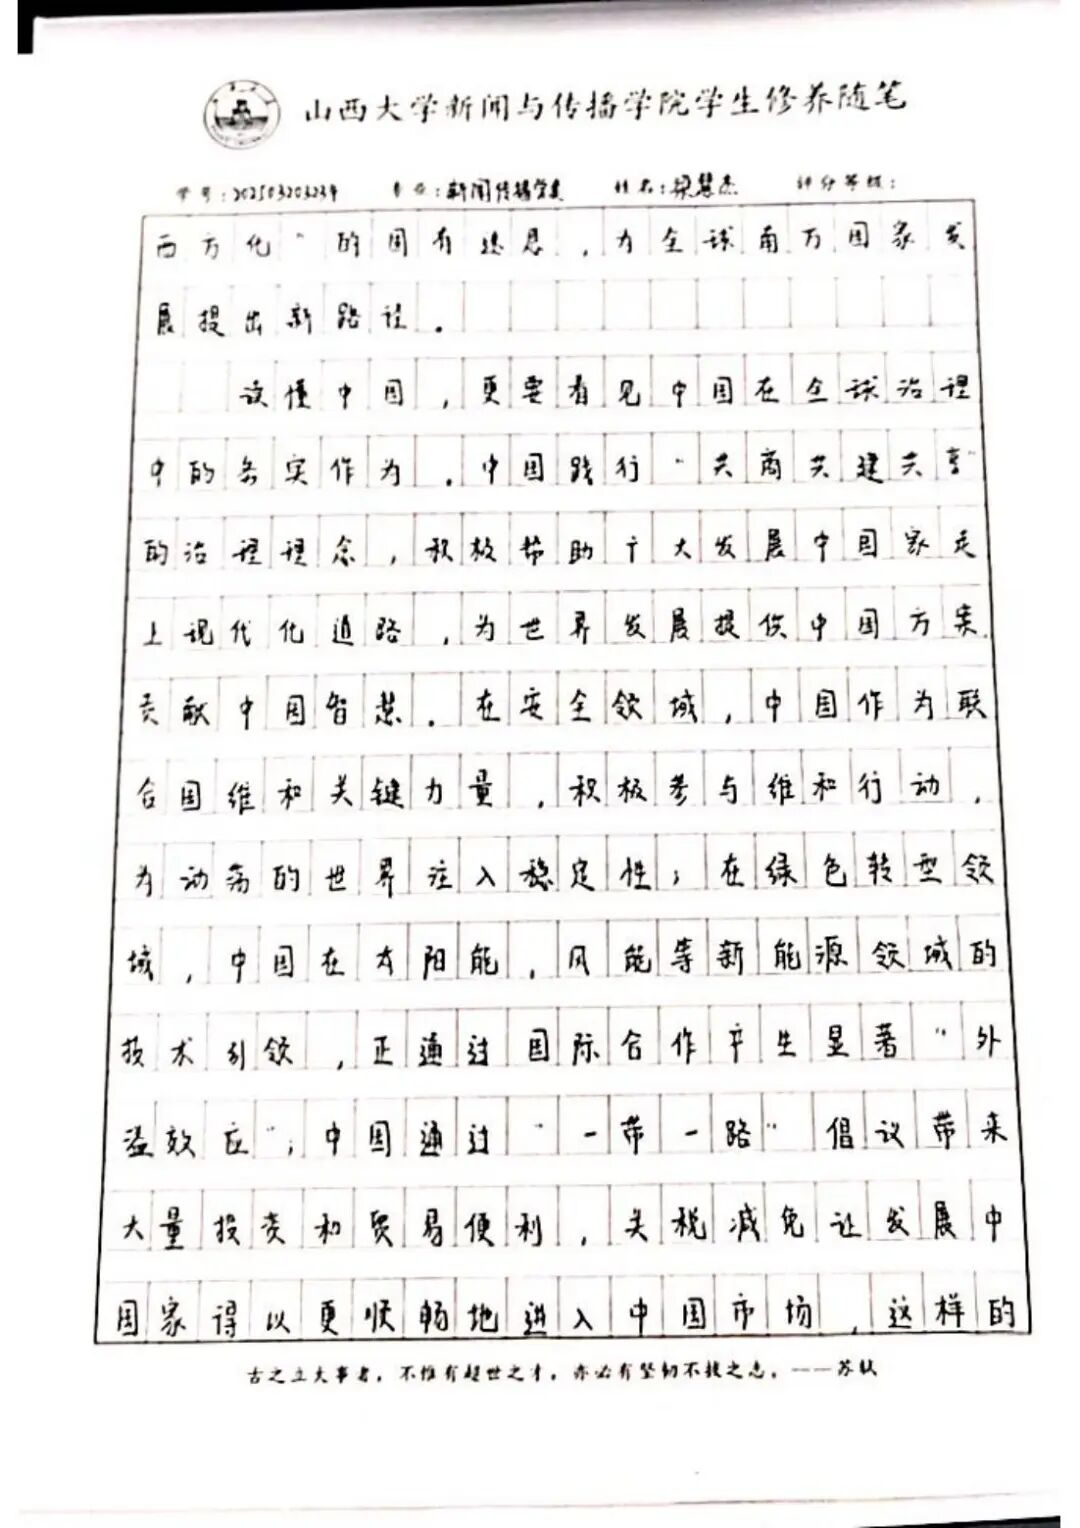 山西大学新闻与传播学院学生修养随笔
学号:202503203234 专业:新闻传播学类 姓名:梁慧杰 评分等级:
西方化”的固有迷思,为全球南方国家发
展提出新路径。
读懂中国,更要看见中国在全球治理
中的务实作为。中国践行“共商共建共享”
的治理理念,积极帮助广大发展中国家走
上现代化道路,为世界发展提供中国方案
贡献中国智慧。在安全领域,中国作为联
合国维和关键力量,积极参与维和行动,
为动荡的世界注入稳定性;在绿色转型领
域,中国在太阳能,风能等新能源领域的
技术引领,正通过国际合作产生显著“外
溢效应”;中国通过“一带一路”倡议带来
大量投资和贸易便利,关税减免让发展中
国家得以更顺畅地进入中国市场,这样的
古之立大事者,不惟有超世之才,亦必有坚韧不拔之志。——苏轼